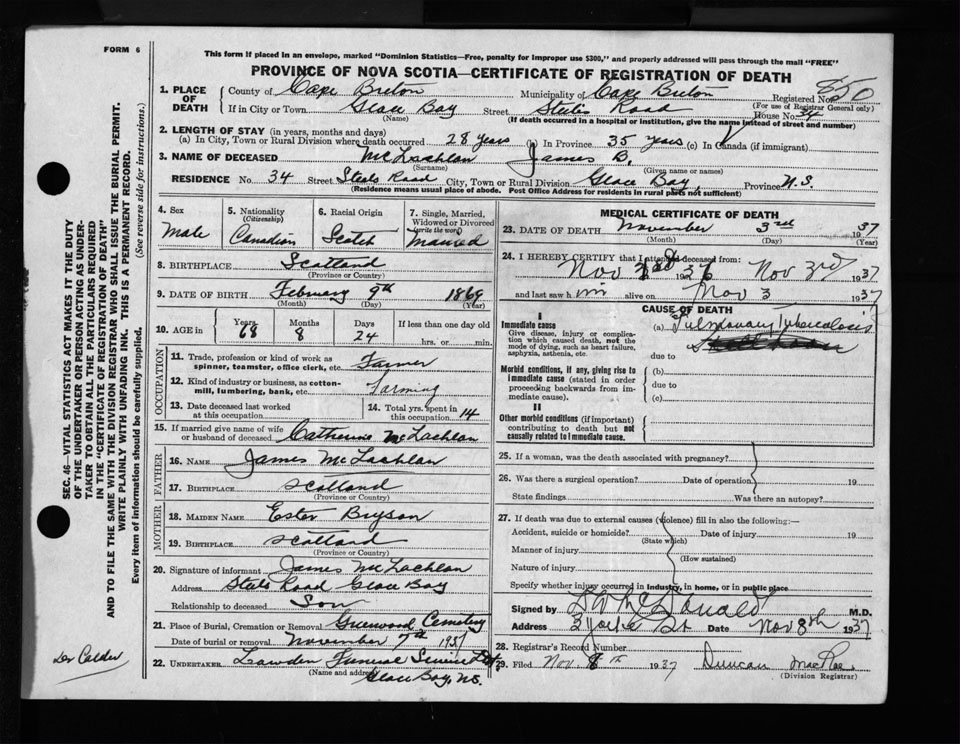 FORM 6
This form if placed in an envelope, marked "Dominion Statistics—Free, penalty for improper use $300," and properly addressed will pass through the mail "FREE"
PROVINCE OF NOVA SCOTIA—CERTIFICATE OF REGISTRATION OF DEATH
1. PLACE OF DEATH County of Cape Breton Municipality of Cape Breton Registered No. 850
(For use of Registrar General only)
If in City or Town Glace Bay Street Steels Road House No. 34
(Name) (If death occurred in a hospital or institution, give the name instead of street and number)
2. LENGTH OF STAY (in years, months and days)
(a) In City, Town or Rural Division where death occurred 28 years (b) In Province 35 years (c) In Canada (if immigrant)
3. NAME OF DECEASED McLachlan James B.
(Surname) (Given name or names)
RESIDENCE No. 34 Street Steels Road City, Town or Rural Division Glace Bay, Province N.S.
(Residence means usual place of abode. Post Office Address for residents in rural parts not sufficient)
4. Sex Male
5. Nationality (Citizenship) Canadian
6. Racial Origin Scotch
7. Single, Married, Widowed or Divorced (write the word) Married
8. BIRTHPLACE Scotland
(Province or Country)
9. DATE OF BIRTH February 9th 1869
(Month) (Day) (Year)
10. AGE in Years 68 Months 8 Days 24 If less than one day old hrs. or min.
OCCUPATION
11. Trade, profession or kind of work as spinner, teamster, office clerk, etc. Farmer
12. Kind of industry or business, as cotton-mill, lumbering, bank, etc. Farming
13. Date deceased last worked at this occupation
14. Total yrs. spent in this occupation 14
15. If married give name of wife or husband of deceased Catherine McLachlan
FATHER
16. NAME James McLachlan
17. BIRTHPLACE Scotland
(Province or Country)
MOTHER
18. MAIDEN NAME Ester Bryson
19. BIRTHPLACE Scotland
(Province or Country)
20. Signature of informant James McLachlan
Address Steels Road Glace Bay
Relationship to deceased Son
21. Place of Burial, Cremation or Removal Greenwood Cemetery
Date of burial or removal November 7th 1937
22. UNDERTAKER Lawder Funeral Service Ltd.
(Name and address) Glace Bay, N.S.
MEDICAL CERTIFICATE OF DEATH
23. DATE OF DEATH November 3rd 1937
(Month) (Day) (Year)
24. I HEREBY CERTIFY that I attended deceased from:
Nov 1936 Nov 3rd 1937
and last saw him alive on Nov 3 1937
CAUSE OF DEATH
I
Immediate cause
Give disease, injury or complication which caused death, not the mode of dying, such as heart failure, asphyxia, asthenia, etc.
(a) Pulmonary Tuberculosis
due to
Morbid conditions, if any, giving rise to immediate cause (stated in order proceeding backwards from immediate cause).
(b)
due to
(c)
II
Other morbid conditions (if important) contributing to death but not causally related to immediate cause.
25. If a woman, was the death associated with pregnancy?
26. Was there a surgical operation? Date of operation 19
State findings Was there an autopsy?
27. If death was due to external causes (violence) fill in also the following:—
Accident, suicide or homicide? Date of injury 19
(State which)
Manner of injury
(How sustained)
Nature of injury
Specify whether injury occurred in industry, in home, or in public place
Signed by McDonald M.D.
Address St Date Nov 8th 1937
28. Registrar's Record Number
29. Filed Nov 8th 1937 Duncan MacRae
(Division Registrar)
SEC. 46—VITAL STATISTICS ACT MAKES IT THE DUTY OF THE UNDERTAKER OR PERSON ACTING AS UNDERTAKER TO OBTAIN ALL THE PARTICULARS REQUIRED IN THE "CERTIFICATE OF REGISTRATION OF DEATH" AND TO FILE THE SAME WITH THE DIVISION REGISTRAR WHO SHALL ISSUE THE BURIAL PERMIT.
WRITE PLAINLY WITH UNFADING INK. THIS IS A PERMANENT RECORD.
Every item of information should be carefully supplied. (See reverse side for instructions.)
Calder